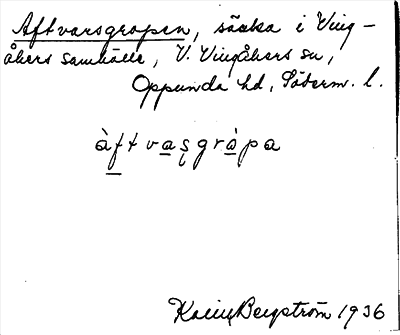 Aftvarsgropen, sänka i Ving-
åkers samhälle, V. Vingåkers sn,
Oppunda hd, Söderm. l.
àftvasgràpa
Karin Bergström 1936